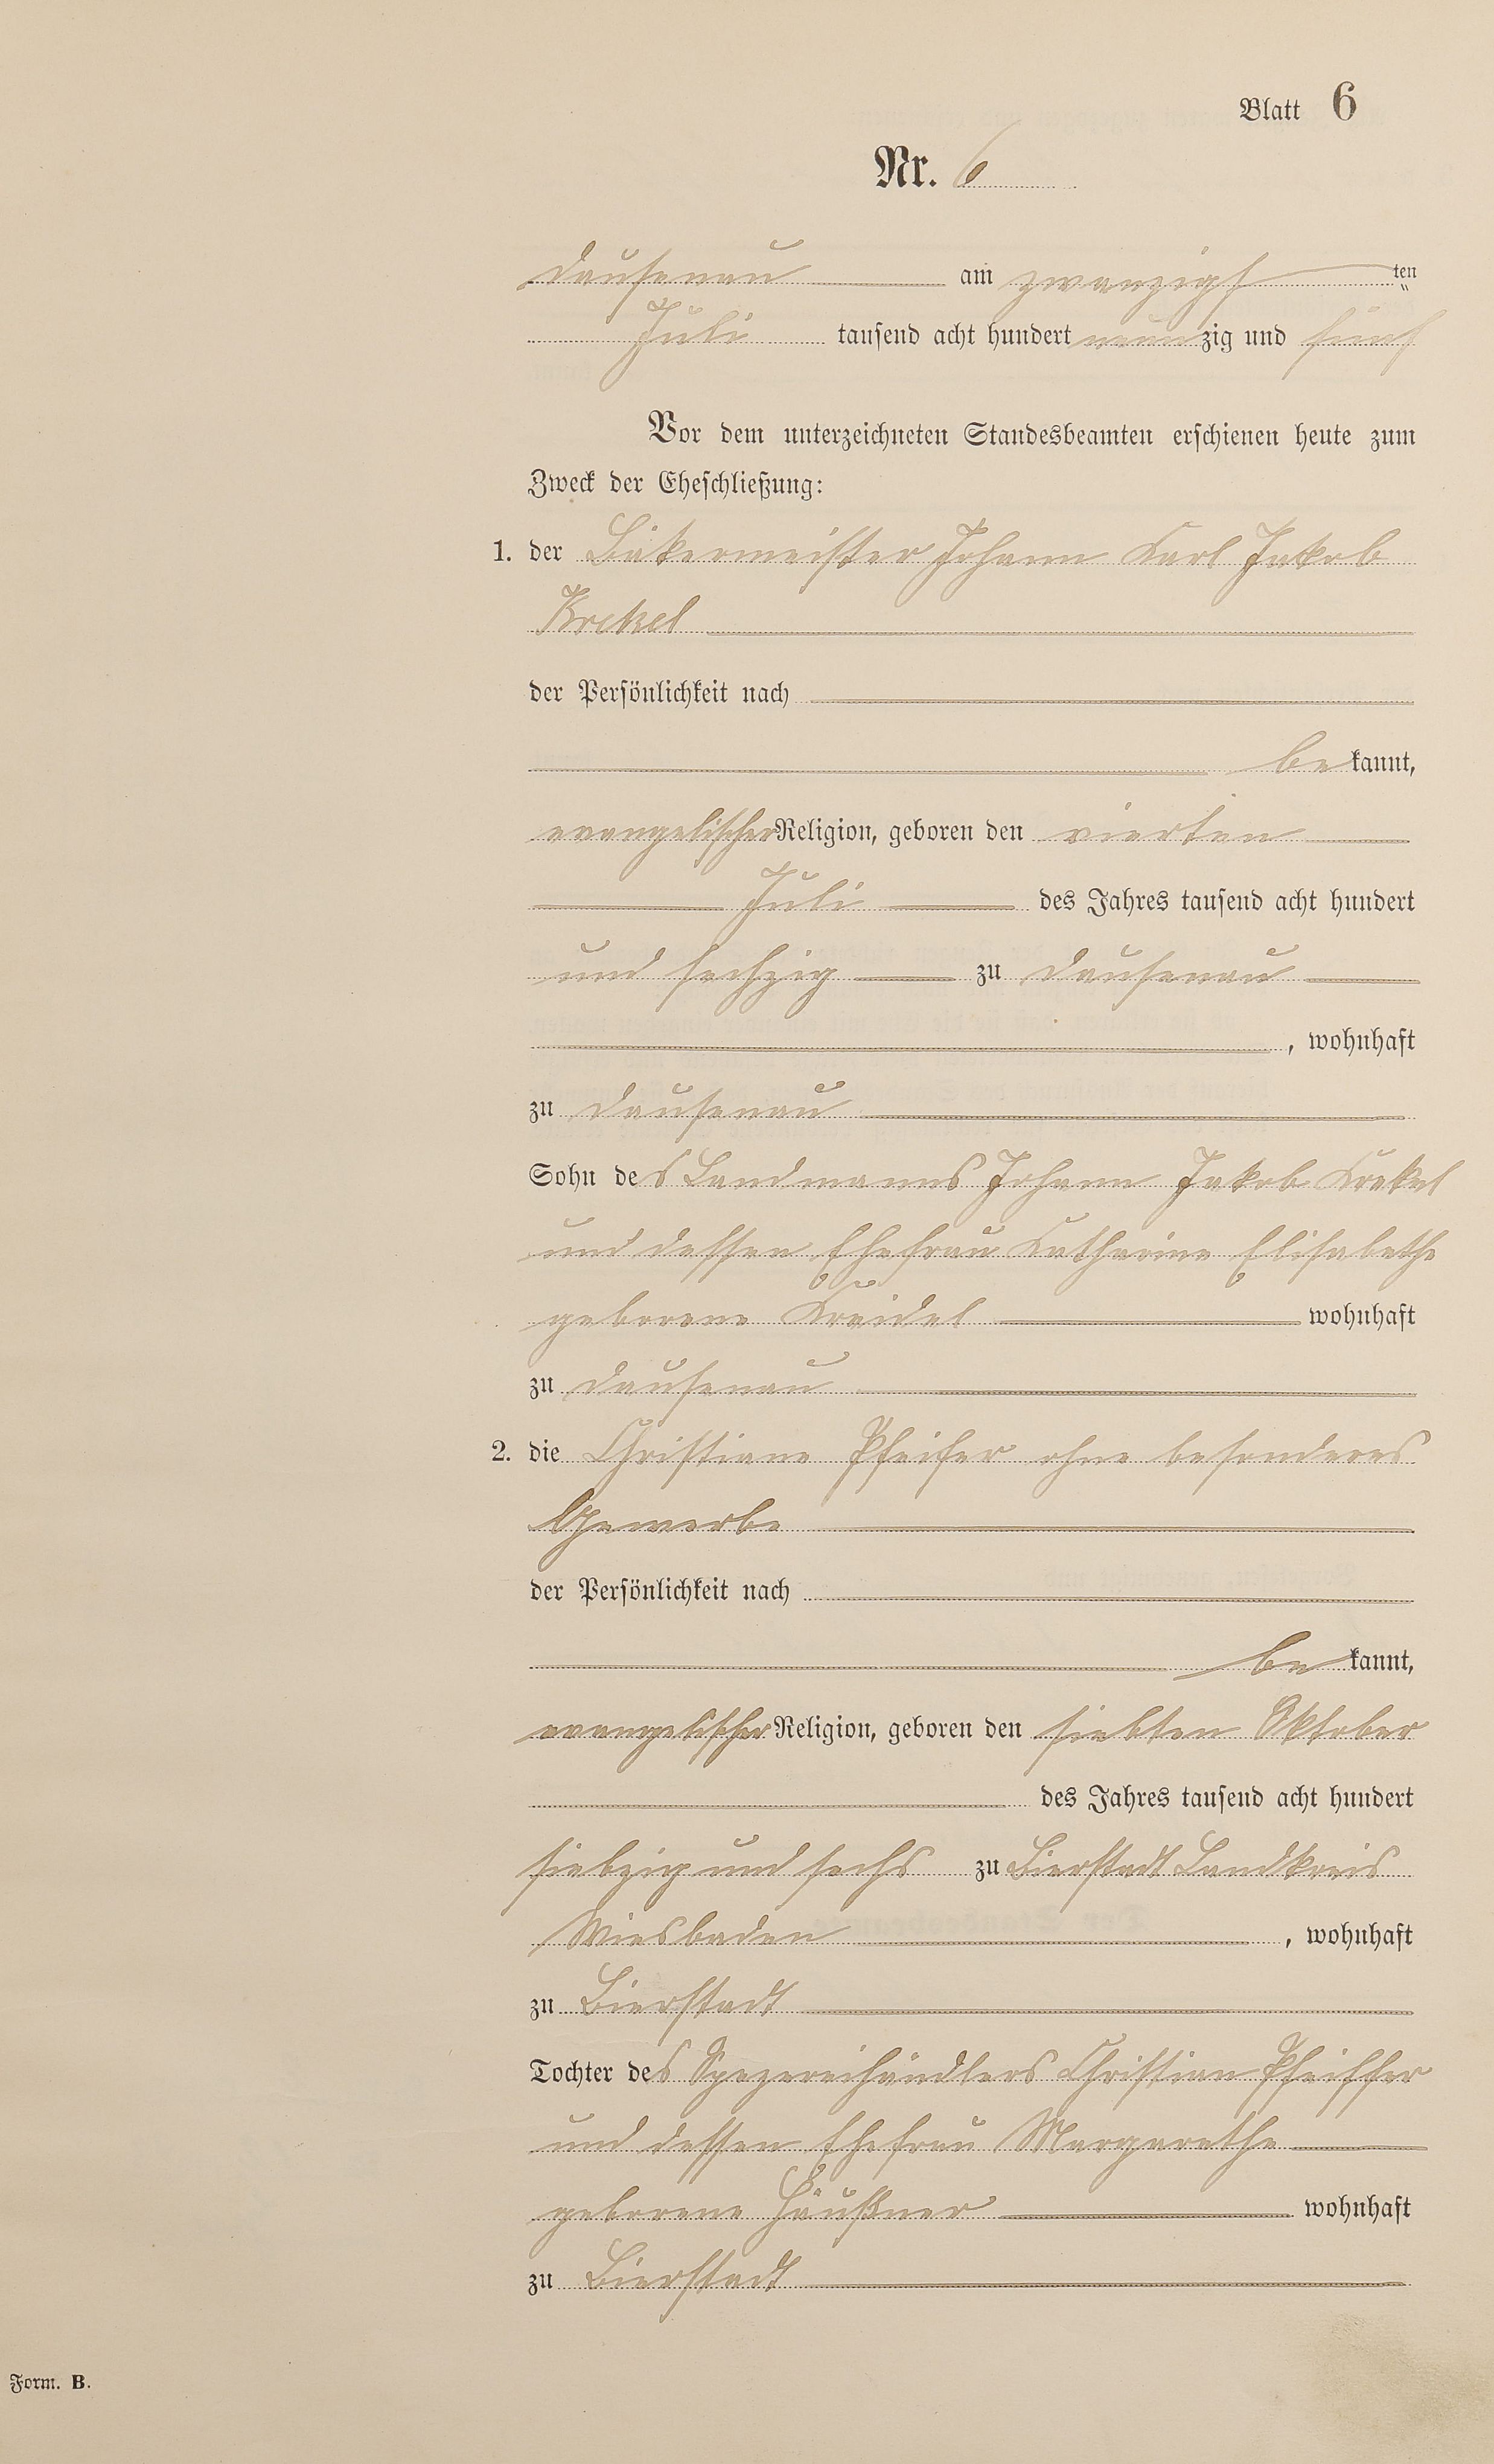 Blatt 6
Nr. 6
Dausenau am zwanzigs ten
Juli tausend acht hundert neunzig und fünf
Vor dem unterzeichneten Standesbeamten erschienen heute zum
Zweck der Eheschließung:
1. der Bäkermeister Johann Karl Jakob
Krekel
der Persönlichkeit nach
bekannt,
evangelischer Religion, geboren den vierten
Juli des Jahres tausend acht hundert
und sechzig zu Dausenau
, wohnhaft
zu Dausenau
Sohn des Landmanns Johann Jakob Krekel
und dessen Ehefrau Katharine Elisabethe
geborene Kreidel wohnhaft
zu Dausenau
2. die Christiane Pfeifer ohne besonderes
Gewerbe
der Persönlichkeit nach
bekannt,
evangelischer Religion, geboren den siebten Oktober
des Jahres tausend acht hundert
siebzig und sechs zu Bierstadt Landkreis
Wiesbaden , wohnhaft
zu Bierstadt
Tochter des Spezereihändlers Christian Pfeiffer
und dessen Ehefrau Margarethe
geborene Häußner wohnhaft
zu Bierstadt
Form. B.